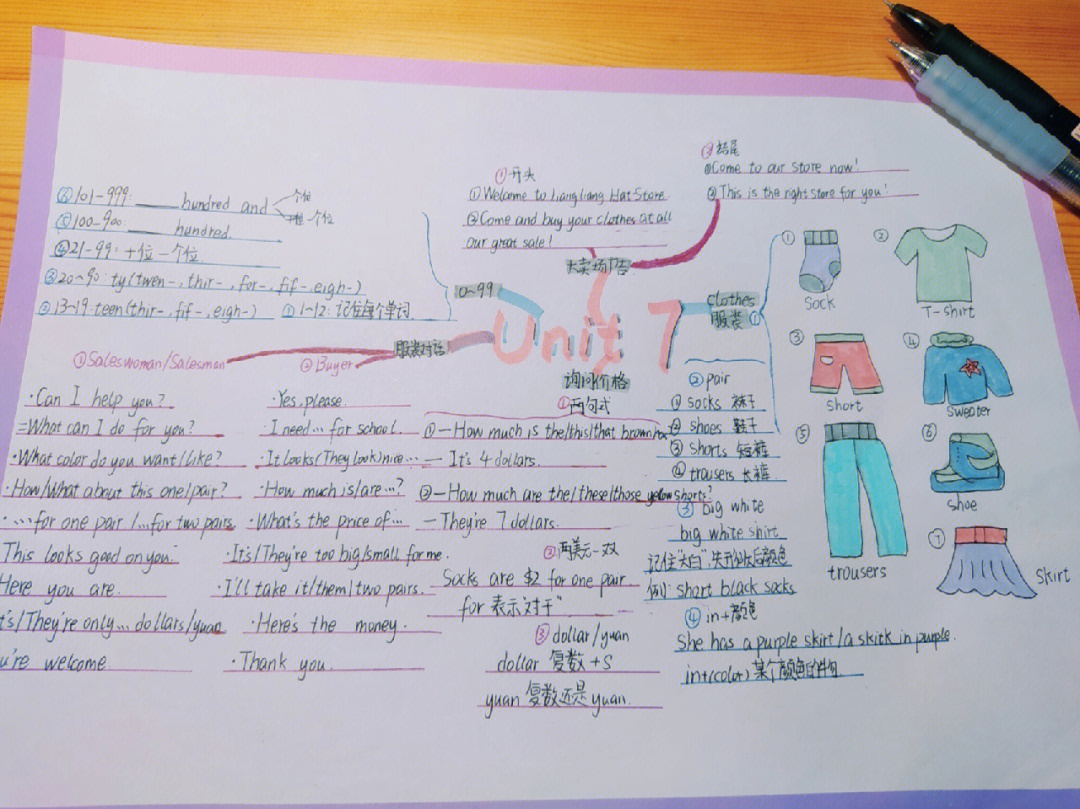 Unit 7
0~99
⑥101-999: ____ hundred and 个位
十位-个位
⑤100-900: ____ hundred.
④21-99: 十位一个位.
③20~90: ty(twen-, thir-, for-, fif-, eigh-)
②13-19: teen(thir-, fif-, eigh-)
①1-12: 记住每个单词
大卖场广告
①开头
①Welcome to Liangliang Hat Store
②Come and buy your clothes at all
our great sale!
②结尾
①Come to our store now!
②This is the right store for you!
clothes
服装①
①
sock
②
T-shirt
③
short
④
sweater
⑤
trousers
⑥
shoe
⑦
skirt
②pair
①socks 袜子
②shoes 鞋子
③shorts 短裤
④trousers 长裤
③big white
big white shirt
记住"大白",先形状后颜色
例: short black socks
④in+颜色
She has a purple skirt/a skitk in purple.
in+(color) 某个颜色的
服装对话
①Saleswoman/Salesman
·Can I help you?
=What can I do for you?
·What color do you want/like?
·How/What about this one/pair?
·...for one pair /...for two pairs.
This looks good on you.
Here you are.
t's/They're only... dollars/yuan
u're welcome
②Buyer
·Yes, please.
·I need... for school.
·It looks(They look) nice...
·How much is/are...?
·What's the price of...
·It's/They're too big/small for me.
·I'll take it/them/two pairs.
·Here's the money.
·Thank you.
询问价格
①两句式
①—How much is the/this/that brown hat?
— It's 4 dollars.
②—How much are the/these/those yellow shorts?
— They're 7 dollars.
②两美元一双
Socks are $2 for one pair.
for 表示"对于"
③dollar/yuan
dollar 复数+s
yuan 复数还是yuan.